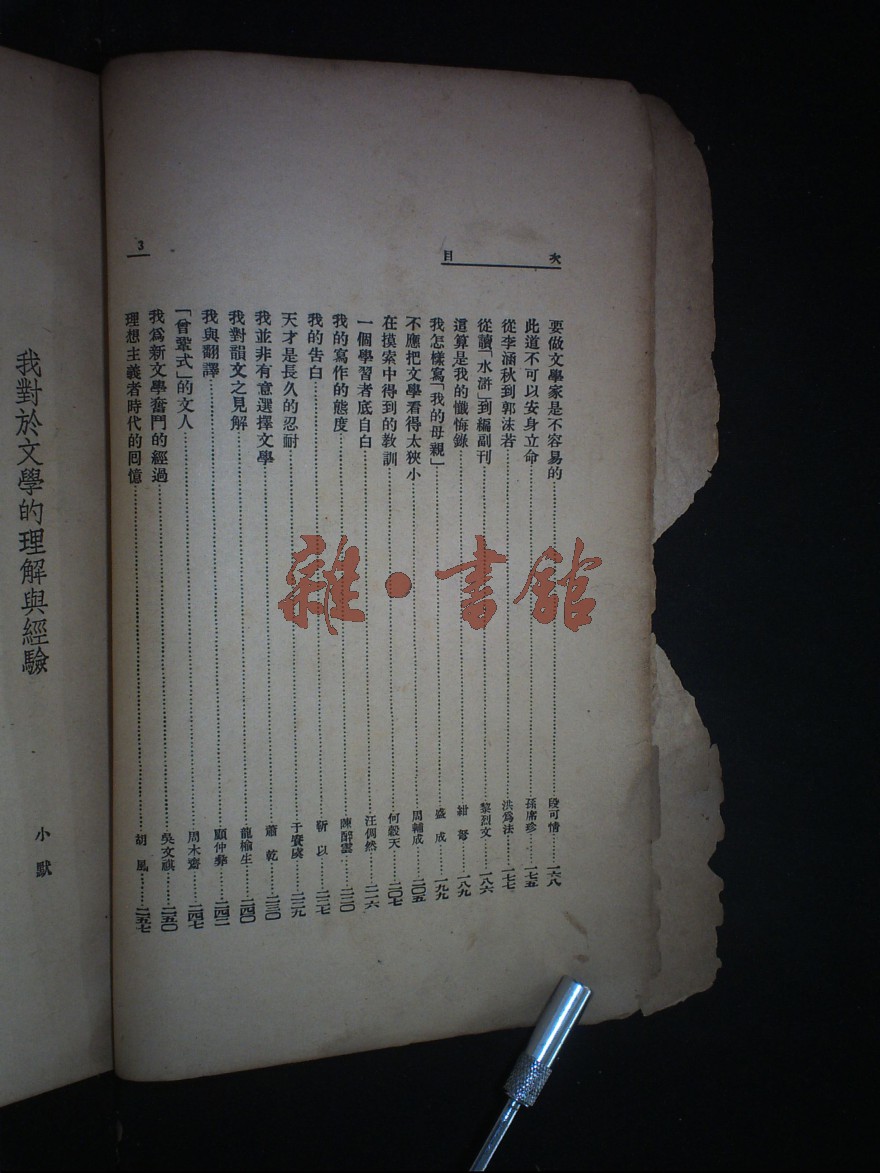 目次
要做文學家是不容易的……段可情……一六八
此道不可以安身立命……孫席珍……一七五
從李涵秋到郭沫若……洪爲法……一七七
從讀「水滸」到編副刊……黎烈文……一八六
這算是我的懺悔錄……紺弩……一八九
我怎樣寫「我的母親」……盛成……一九九
不應把文學看得太狹小……周輔成……二〇五
在摸索中得到的教訓……何穀天……二〇七
一個學習者底自白……汪倜然……二一六
我的寫作的態度……陳醉雲……二二〇
我的告白……靳以……二二七
天才是長久的忍耐……于賡虞……二二九
我並非有意選擇文學……蕭乾……二三〇
我對韻文之見解……龍榆生……二四〇
我與翻譯……顧仲彝……二四二
「曾鞏式」的文人……周木齋……二四七
我爲新文學奮鬥的經過……吳文祺……二五〇
理想主義者時代的回憶……胡風……二五七
3
我對於文學的理解與經驗
小默
雜·書館